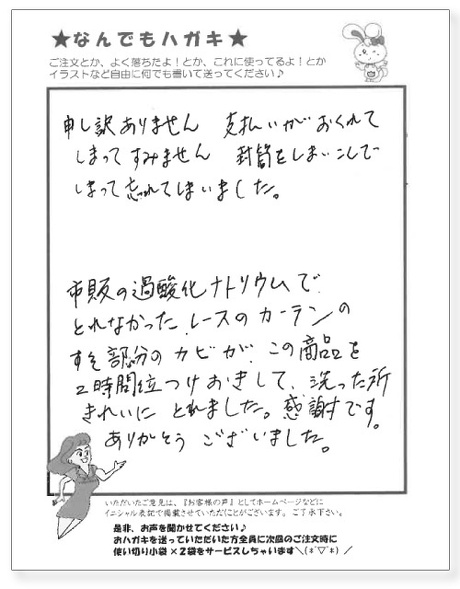 ★なんでもハガキ★
ご注文とか、よく落ちたよ!とか、これに使ってるよ!とか
イラストなど自由に何でも書いて送ってください♪
申し訳ありません 支払いがおくれて
しまってすみません 封筒をしまいこんで
しまって忘れてしまいました。
市販の過酸化ナトリウムで
とれなかった レースのカーテンの
すそ部分のカビが この商品を
2時間位つけおきして、洗った所
きれいに とれました。感謝です。
ありがとう ございました。
いただいたご意見は、『お客様の声』としてホームページなどに
イニシャル表記で掲載させていただくことがございます。ご了承下さい。
是非、お声を聞かせてください♪
おハガキを送っていただいた方全員に次回のご注文時に
使い切り小袋×2袋をサービスしちゃいます＼(*ˊ▽ˋ*)／